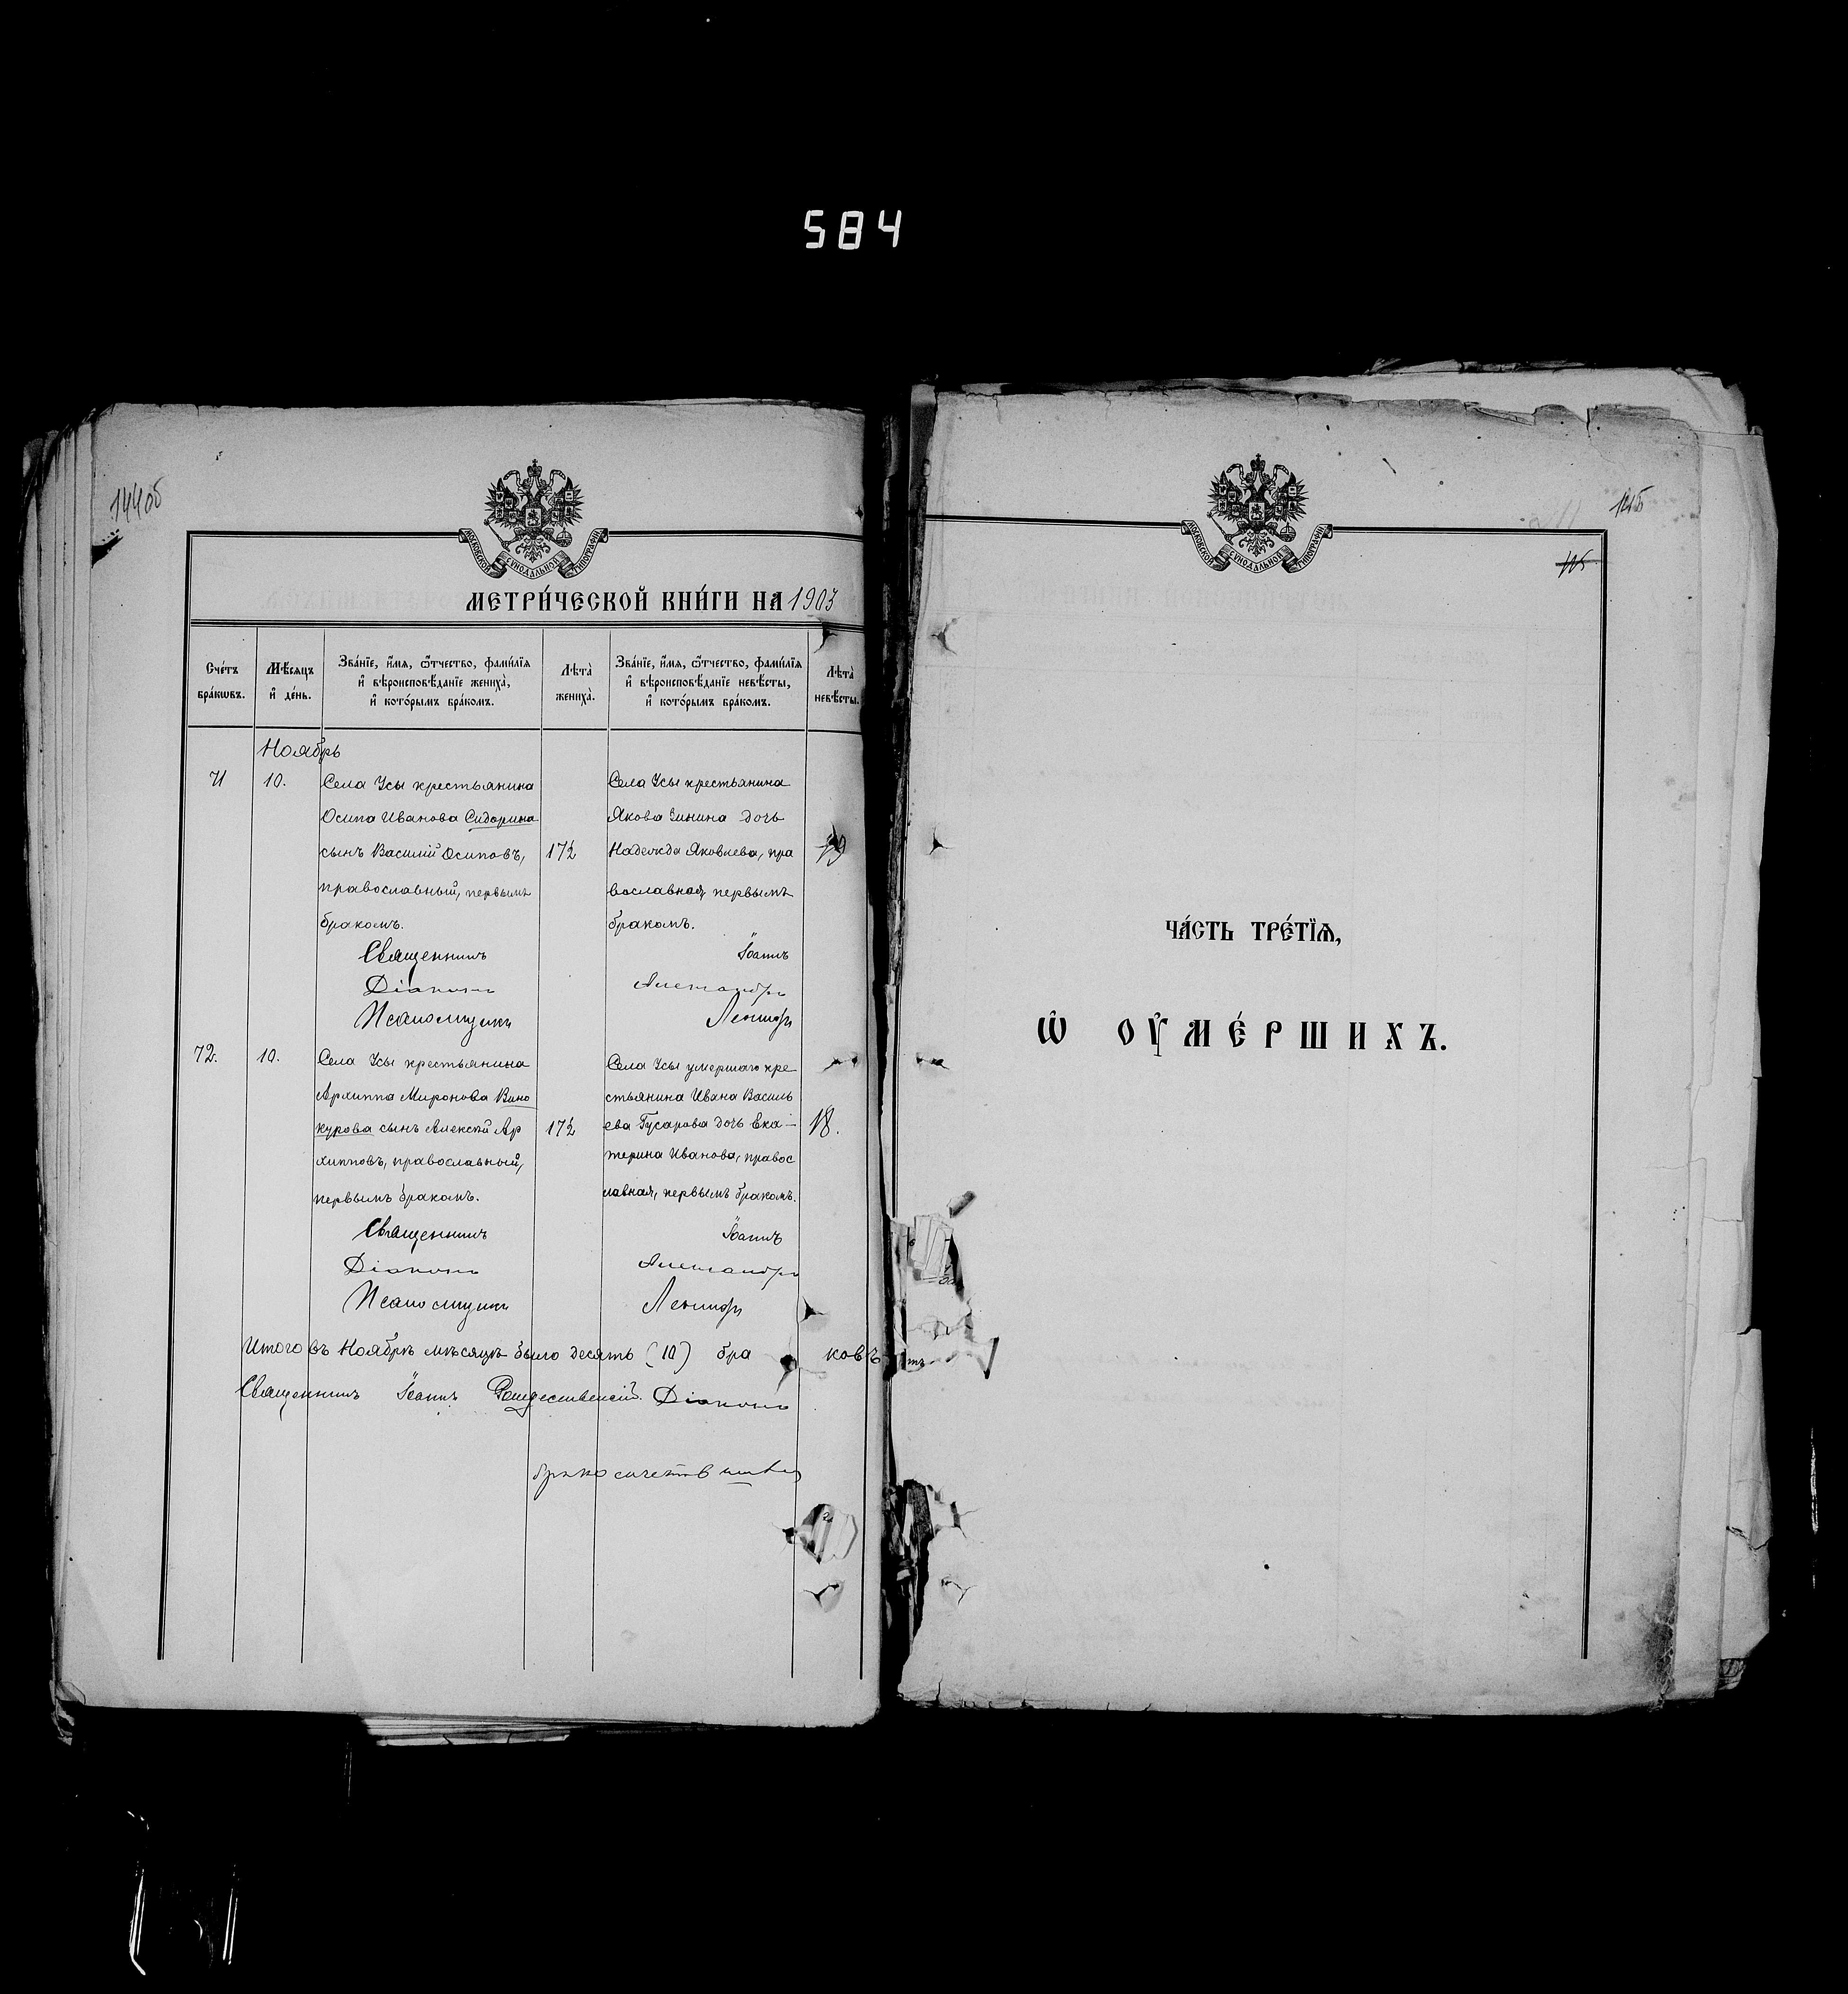 584
144об
МОСКОВСКОЙ СУНОДАЛЬНОЙ ТИПОГРАФІИ
МЕТРИ́ЧЕСКОЙ КНИ́ГИ НА 1903
Сче́тъ бра́кѡвъ.
Мѣ́сяцъ и҆ де́нь.
Зва́нїе, и҆́мя, ѻ҆́тчество, фами́лїя и҆ вѣроисповѣ́данїе жениха̀, и҆ кото́рымъ бра́комъ.
Лѣта̀ жениха̀.
Зва́нїе, и҆́мя, ѻ҆́тчество, фами́лїя и҆ вѣроисповѣ́данїе невѣ́сты, и҆ кото́рымъ бра́комъ.
Лѣта̀ невѣ́сты.
Ноябрь
71
10.
Села Усы крестьянина
Осипа Иванова Сидорина
сынъ Василій Осиповъ,
православный, первымъ
бракомъ.
17½
Села Усы крестьянина
Якова Зинина дочь
Надежда Яковлева, пра
вославная, первымъ
бракомъ.
19
Священникъ Іоаннъ
Діаконъ Александръ
Псаломщикъ
72.
10.
Села Усы крестьянина
Архиппа Миронова Вино
курова сынъ Алексій Ар
хипповъ, православный,
первымъ бракомъ.
17½
Села Усы умершаго кре
стьянина Ивана Василь
ева Гусарова дочь Ека-
терина Иванова, правос
лавная, первымъ бракомъ.
18.
Священникъ Іоаннъ
Діаконъ Александръ
Псаломщикъ
Итого въ Ноябрѣ мѣсяцѣ было десять (10) бра ковъ
Священникъ Іоаннъ Рождественскій. Діаконъ
145
МОСКОВСКОЙ СУНОДАЛЬНОЙ ТИПОГРАФІИ
ЧА́СТЬ ТРЕ́ТЇѦ,
Ѡ҆ ОУ҆МЕ́РШИХЪ.